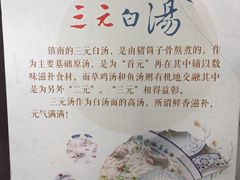 三元白汤
镇南的三元白汤，是由猪筒子骨熬煮的，作
为主要基础原汤，是为“首元”再在其中辅以数
味滋补食材。而草鸡汤和鱼汤则有机地交融其中
是为另外“二元”。“三元”相得益彰。
三元汤作为白汤面的高汤，所谓鲜香滋补，
元气满满！